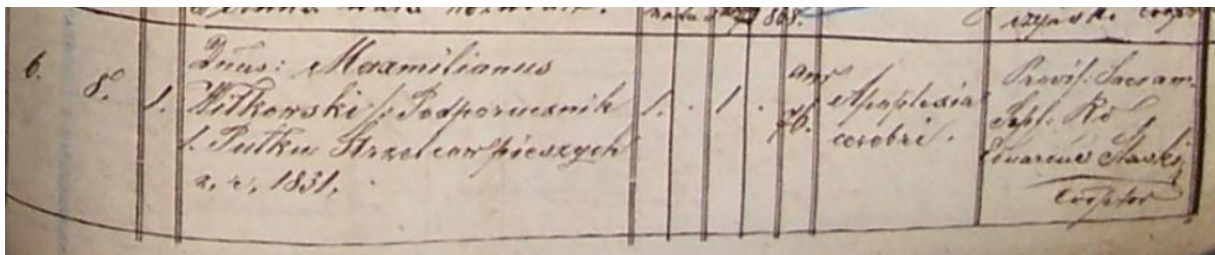 natus 1868.
6. 8. 1. Dnus: Maxmilianus
Witkowski /: Podporucznik
1. Pułku Strzelcow pieszych
z. r. 1831.
1. . 1. .
ann 76.
Apoplexia
cerebri.
Provis. Sacram.
Sepl. Rd
Eduardus Staski
Coopter